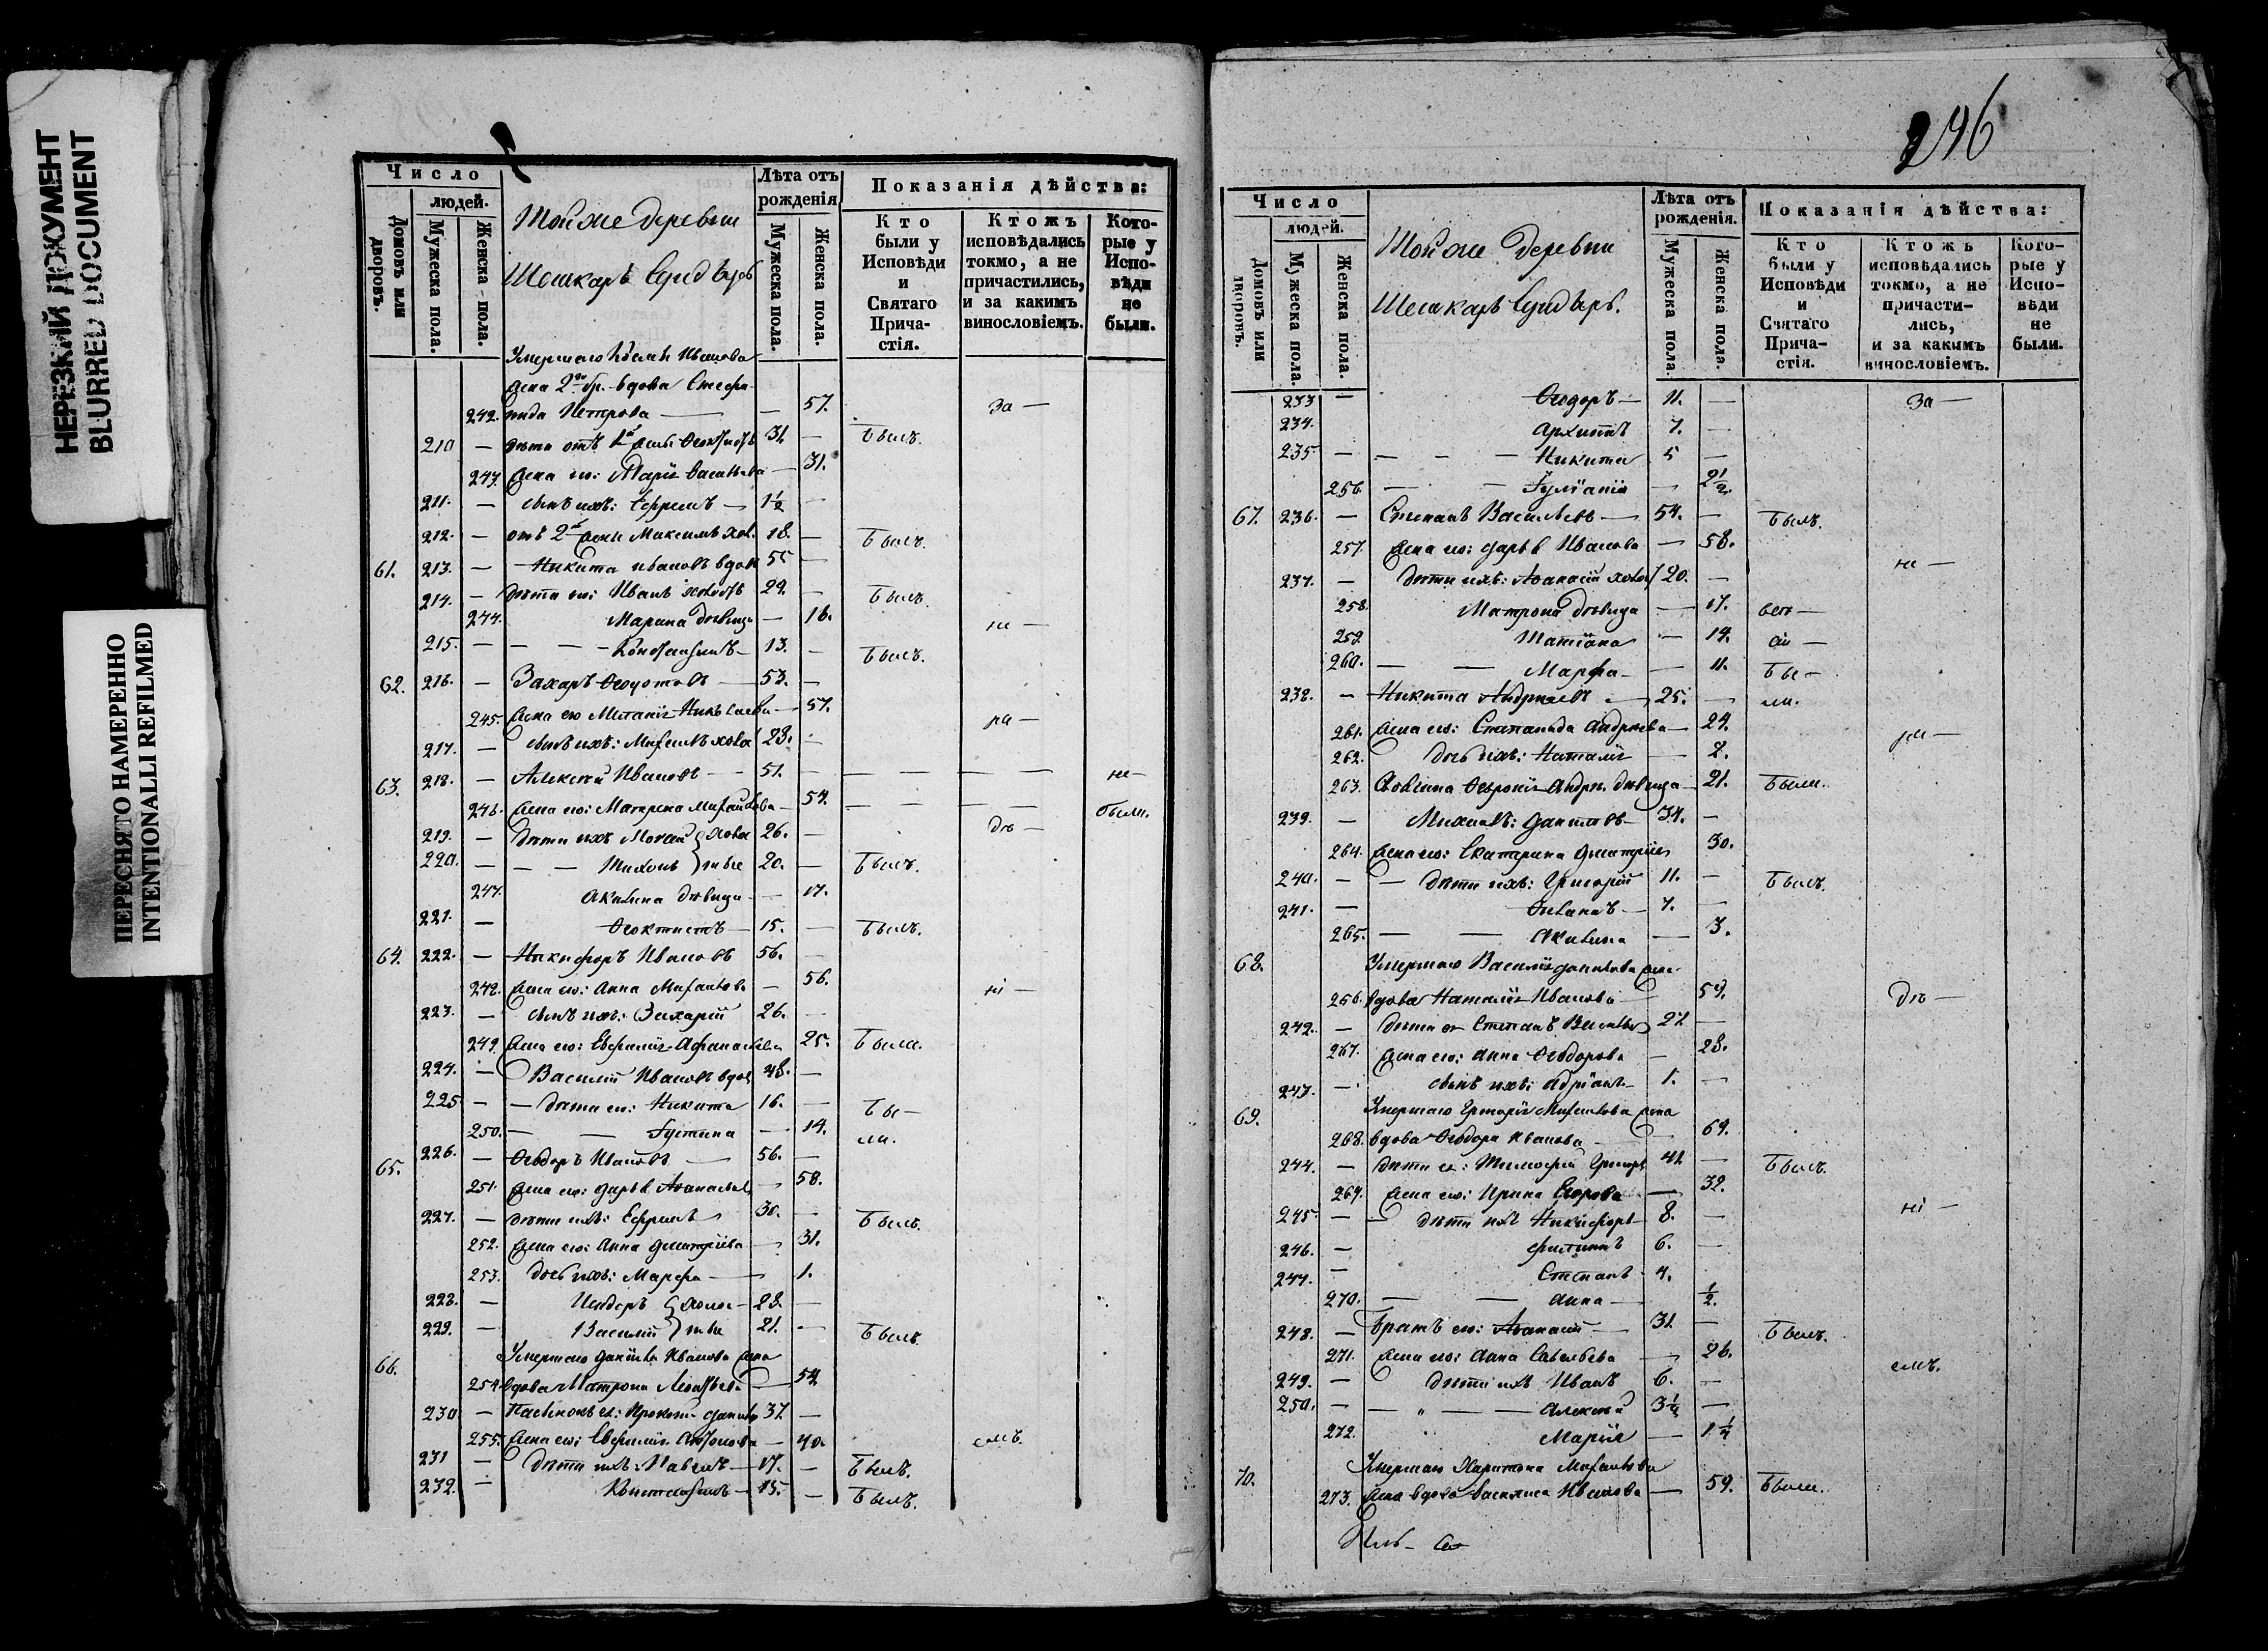 НЕРЕЗКИЙ ДОКУМЕНТ
BLURRED DOCUMENT
ПЕРЕСНЯТО НАМЕРЕННО
INTENTIONALLI REFILMED
Число
людей.
Домовъ или дворовъ.
Мужеска пола.
Женска пола.
Тойже деревни
Лѣта отъ рожденія
Мужеска пола.
Женска пола.
Показанія дѣйства:
Кто были у Исповѣди и Святаго Причастія.
Ктожъ исповѣдались токмо, а не причастились, и за какимъ винословіемъ.
Которые у Исповѣди не были.
Умершаго Иванова
жена 2го бр. вдова Стефа-
242. нида Петрова — — 57. за —
210 — дѣти отъ 1й жены 31. — Былъ.
243. жена его: Марія Васильева — 31.
211. — сынъ ихъ: Ефремъ — 1½ —
212. — отъ 2й жены Максимъ хол. 18. — Былъ.
61. 213. — Никита Ивановъ вдов 55 —
214. — дѣти его: Иванъ холостъ 29. — Былъ.
244. Марина дѣвица — 16. не —
215. — — — Константинъ — 13. — Былъ.
62. 216. — Захаръ — 53. —
245. жена его Николаева — 57. ра —
217. — сынъ ихъ: Михаилъ холост 23. —
63. 218. — Алексѣй Ивановъ — 51. — — — — — не —
246. жена его: Матрена Михайлова — 54. — — — — были.
219. — дѣти ихъ холос 26. — дѣ —
220. — — — Тихонъ тые 20. — Былъ.
247. Акилина дѣвица — 17.
221. — Ѳеоктистъ — 15. — Былъ.
64. 222. — Никифоръ Ивановъ 56. —
248. жена его: Анна Михайлова — 56. ні —
223. — сынъ ихъ: Захарій 26. —
249. жена его: Евфимія Афанасьева 25. Были.
224. — Василій Ивановъ вдов 48. —
225 — — дѣти его: Никита 16. — Бы —
250. — — Іустина — 14. ли.
65. 226. — Ѳеодоръ Ивановъ — 56. —
251. жена его: Дарья — 58.
227. — дѣти ихъ: Ефремъ 30. — Былъ.
252. жена его: Анна Дмитріева — 31.
253. дочь ихъ: Марфа — 1.
228. — холос — 23. —
229. — Василій тые 21. — Былъ.
66. Умершаго Данилы Иванова жена
254. вдова Матрона — 54.
230 — Пасынокъ ея: 37. —
255. жена его: Евфимія — 40. емъ.
231 — дѣти ихъ: Павелъ — 17. — Былъ.
232. — — 15. — Былъ.
246
Число
людей.
Домовъ или дворовъ.
Мужеска пола.
Женска пола.
Тойже деревни
Лѣта отъ рожденія.
Мужеска пола.
Женска пола.
Показанія дѣйства:
Кто были у Исповѣди и Святаго Причастія.
Ктожъ исповѣдались токмо, а не причастились, и за какимъ винословіемъ.
Которые у Исповѣди не были.
233 — Ѳеодоръ — 11. — за —
234. Архиппъ 7. —
235. — — — — Никита 5 —
256. — — Іуліанія — 2½.
67. 236. — Степанъ Васильевъ — 54. — Былъ.
257. жена его: Дарья Иванова — 58.
237. — дѣти ихъ: Аѳанасій холос 20. — не —
258. Матрона дѣвица — 17. все —
259 Татіана — 14. —
260. — — Марфа — — 11. Бы —
238. — Никита Андреевъ — 25. — ли.
261. жена его: Степанида Андреева — 24.
262. дочь ихъ: Наталія — 2.
263. Ѳевронія Андре. дѣвица — 21. Были.
239. — Михаилъ: — 34. —
264. жена его: Екатерина Дмитріева 30.
240. — — дѣти ихъ: Григорій 11. — Былъ.
241. — — 7. —
265. — — Акилина — 3.
68. Умершаго Василія жена
256. вдова Наталія Иванова — 59. дѣ —
242. — дѣти ея Степанъ 27 —
267. жена его: Анна Ѳеодорова — 28.
243. — сынъ ихъ: Адріанъ — 1. —
69. Умершаго Григорія Михайлова жена
268. вдова Ѳеодора Иванова — — 69.
244. — дѣти ея: Тимофей Григорь 41 — Былъ.
269. жена его: Ирина Егорова — 32.
245. — — дѣти ихъ Никифоръ — 8. — ні —
246. — Филиппъ 6. —
247. — Степанъ — 4.
270. — — Анна — ½.
248. — братъ его: Аѳанасій — 31. — Былъ.
271. жена его: Анна Савельева — 26. емъ.
249. — дѣти ихъ Иванъ 6. —
250. — — — Алексѣй 3½ —
272. Марія — 1½
70. Умершаго Харитона Михайлова
273. жена вдова Василиса Иванова — 59. Были.